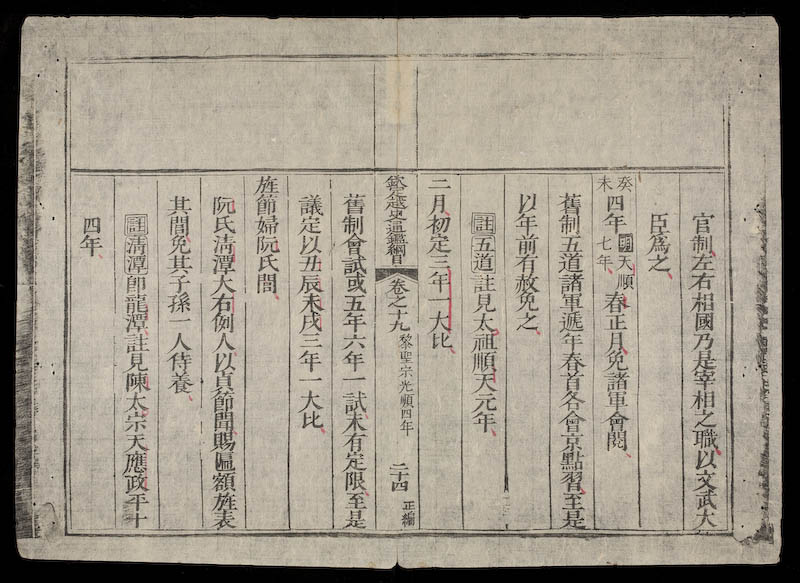 官制左右相國乃是宰相之職以文武大
臣爲之
癸未四年明天順七年春正月免諸軍會閱
舊制五道諸軍遞年春首各會京點習至是
以年前有赦免之
註五道註見太祖順天元年
二月初定三年一大比
欽定越史通鑑綱目 卷之十九 黎聖宗光順四年 二十四 正編
舊制會試或五年六年一試未有定限至是
議定以丑辰未戌三年一大比
旌節婦阮氏閭
阮氏清潭大右例人以貞節聞賜匾額旌表
其閭免其子孫一人侍養
註清潭卽龍潭註見陳太宗天應政平十
四年